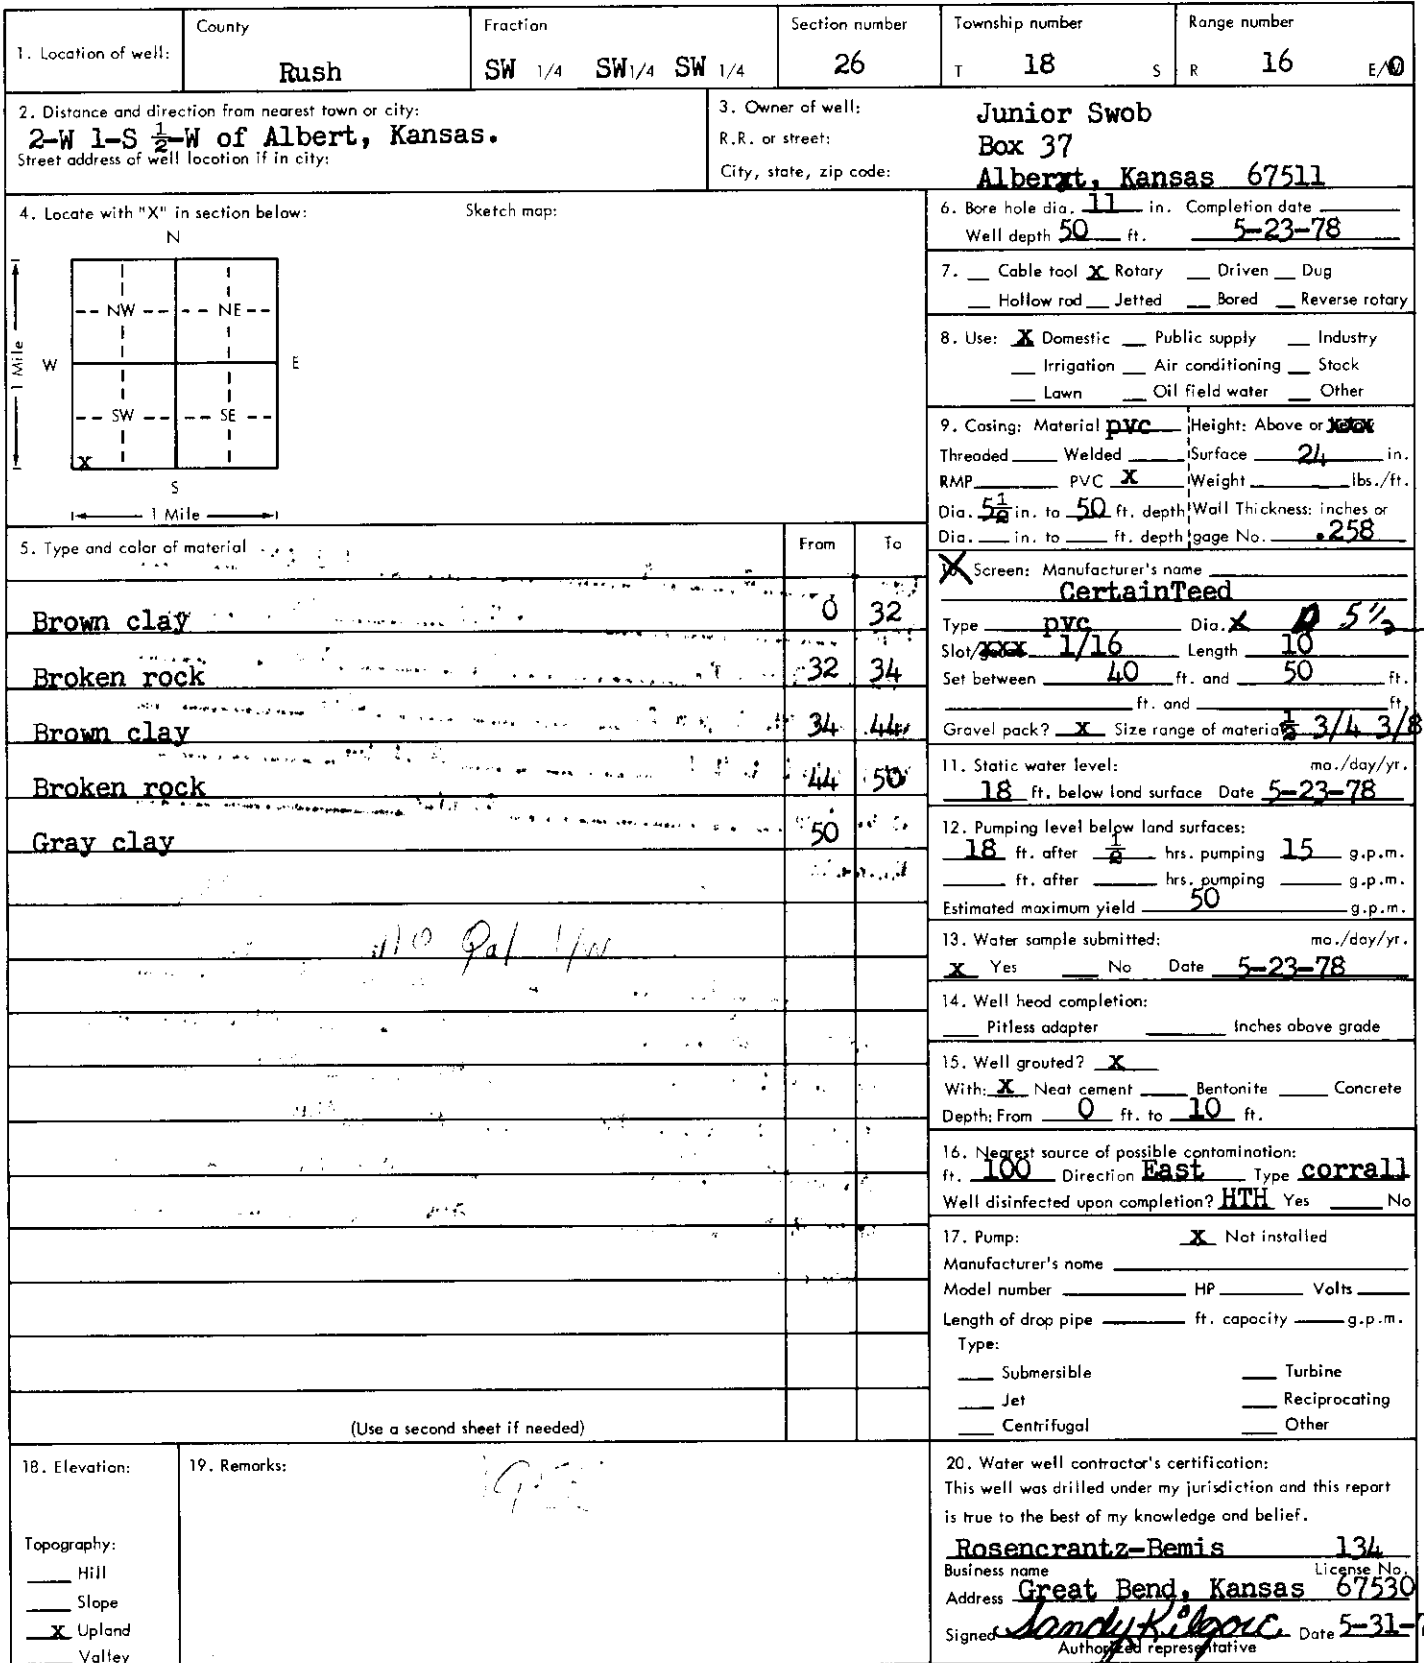 1. Location of well:
County
Rush
Fraction
SW 1/4 SW 1/4 SW 1/4
Section number
26
Township number
T 18 S
Range number
R 16 E/
2. Distance and direction from nearest town or city:
2-W 1-S ½-W of Albert, Kansas.
Street address of well location if in city:
3. Owner of well: Junior Swob
R.R. or street: Box 37
City, state, zip code: Alberxt, Kansas 67511
4. Locate with "X" in section below: Sketch map:
N
NW NE
W E
1 Mile
SW SE
X
S
1 Mile
6. Bore hole dia. 11 in. Completion date
Well depth 50 ft. 5-23-78
7. Cable tool X Rotary Driven Dug
Hollow rod Jetted Bored Reverse rotary
8. Use: X Domestic Public supply Industry
Irrigation Air conditioning Stock
Lawn Oil field water Other
9. Casing: Material pvc Height: Above or
Threaded Welded Surface 24 in.
RMP PVC X Weight lbs./ft.
Dia. 5½ in. to 50 ft. depth Wall Thickness: inches or
Dia. in. to ft. depth gage No. .258
5. Type and color of material From To
Brown clay 0 32
Broken rock 32 34
Brown clay 34 44
Broken rock 44 50
Gray clay 50
(Use a second sheet if needed)
Screen: Manufacturer's name
CertainTeed
Type pvc Dia. X 5½
Slot/ 1/16 Length 10
Set between 40 ft. and 50 ft.
ft. and ft.
Gravel pack? X Size range of material ½ 3/4 3/8
11. Static water level: mo./day/yr.
18 ft. below land surface Date 5-23-78
12. Pumping level below land surfaces:
18 ft. after ½ hrs. pumping 15 g.p.m.
ft. after hrs. pumping g.p.m.
Estimated maximum yield 50 g.p.m.
13. Water sample submitted: mo./day/yr.
X Yes No Date 5-23-78
14. Well head completion:
Pitless adapter Inches above grade
15. Well grouted? X
With: X Neat cement Bentonite Concrete
Depth: From 0 ft. to 10 ft.
16. Nearest source of possible contamination:
ft. 100 Direction East Type corrall
Well disinfected upon completion? HTH Yes No
17. Pump: X Not installed
Manufacturer's name
Model number HP Volts
Length of drop pipe ft. capacity g.p.m.
Type:
Submersible Turbine
Jet Reciprocating
Centrifugal Other
18. Elevation:
Topography:
Hill
Slope
X Upland
Valley
19. Remarks:
20. Water well contractor's certification:
This well was drilled under my jurisdiction and this report
is true to the best of my knowledge and belief.
Rosencrantz-Bemis 134
Business name License No.
Address Great Bend, Kansas 67530
Signed Sandy Kilgore Date 5-31-
Authorized representative